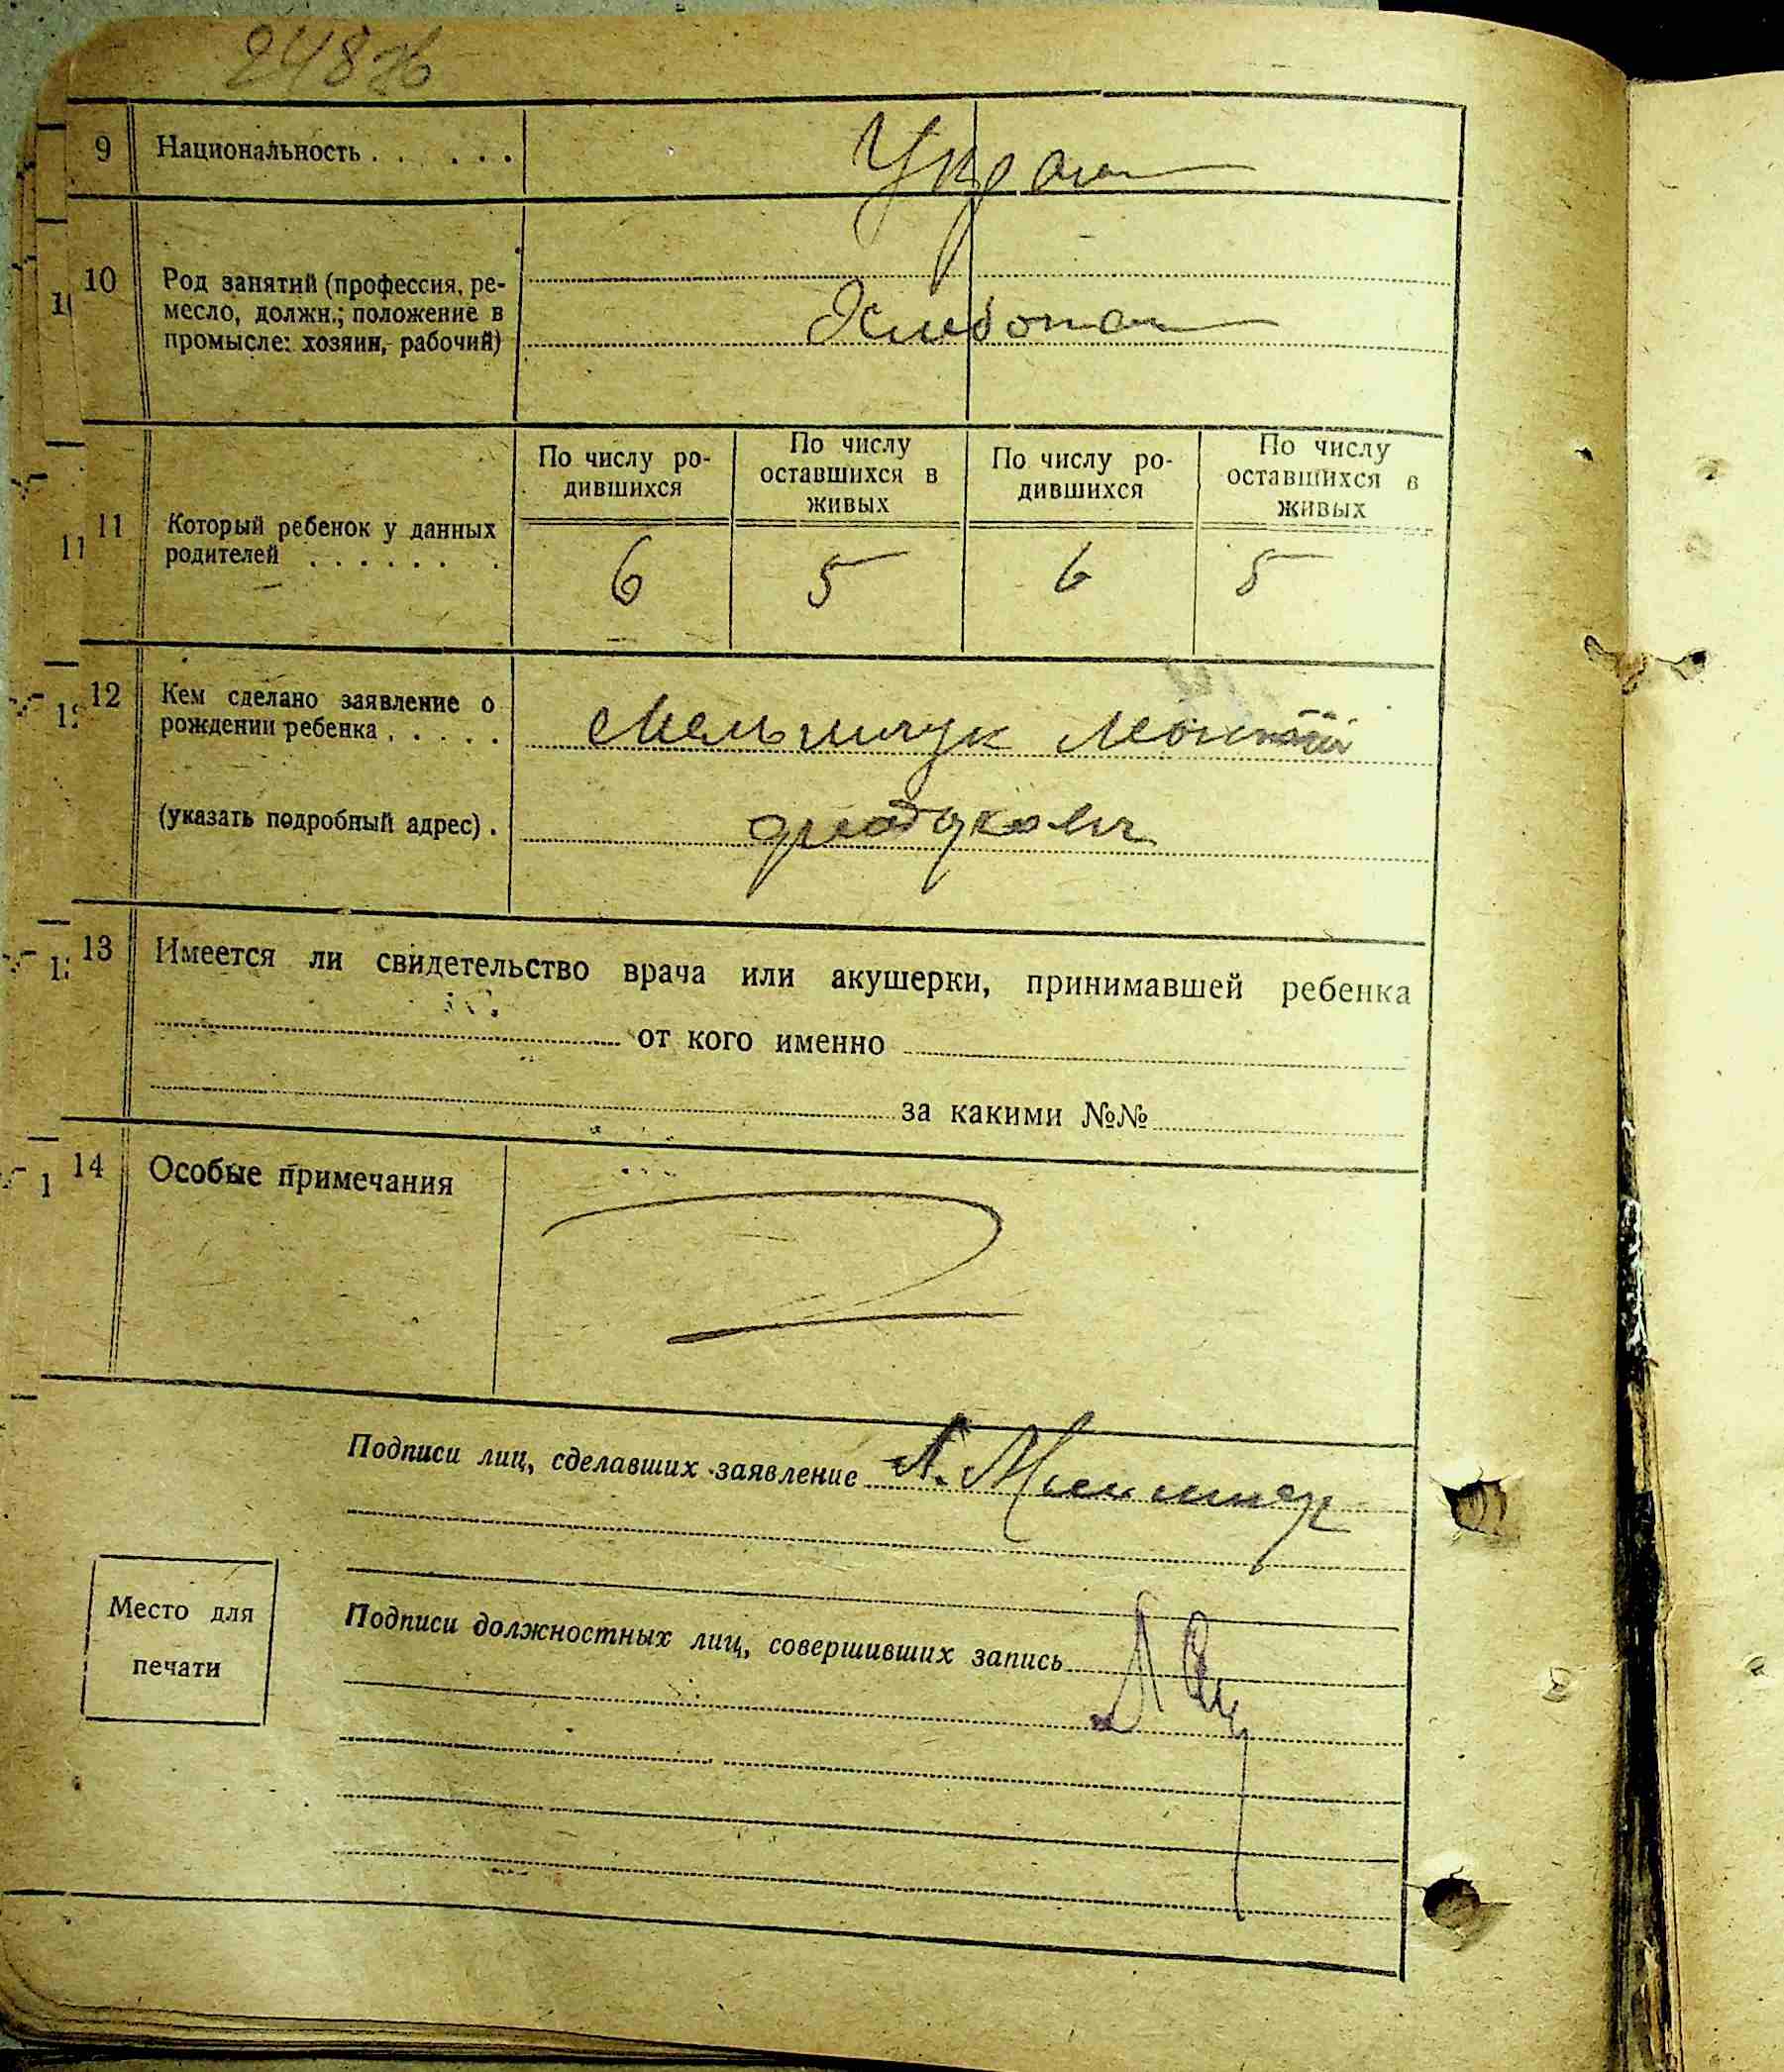 9 Национальность . . . . . . Укра
10 Род занятий (профессия, ре-
месло, должн.; положение в
промысле: хозяин, рабочий)
Хлебопаш
По числу ро-
дившихся
По числу
оставшихся в
живых
По числу ро-
дившихся
По числу
оставшихся в
живых
11 Который ребенок у данных
родителей . . . . . . .
6 5 6 5
12 Кем сделано заявление о
рождении ребенка . . . . .
Мельничук
(указать подробный адрес) .
13 Имеется ли свидетельство врача или акушерки, принимавшей ребенка
от кого именно
за какими №№
14 Особые примечания
Подписи лиц, сделавших заявление
Место для
печати
Подписи должностных лиц, совершивших запись